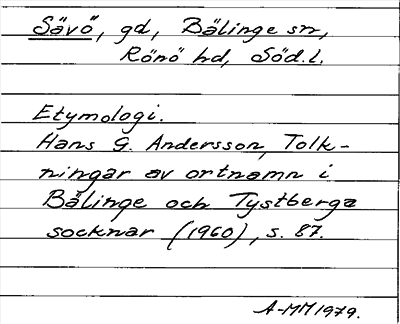 Sävö, gd, Bälinge sn,
Rönö hd, Söd.l.
Etymologi.
Hans G. Andersson, Tolk-
ningar av ortnamn i
Bälinge och Tystberga
socknar (1960), s. 87.
A-MM 1979.